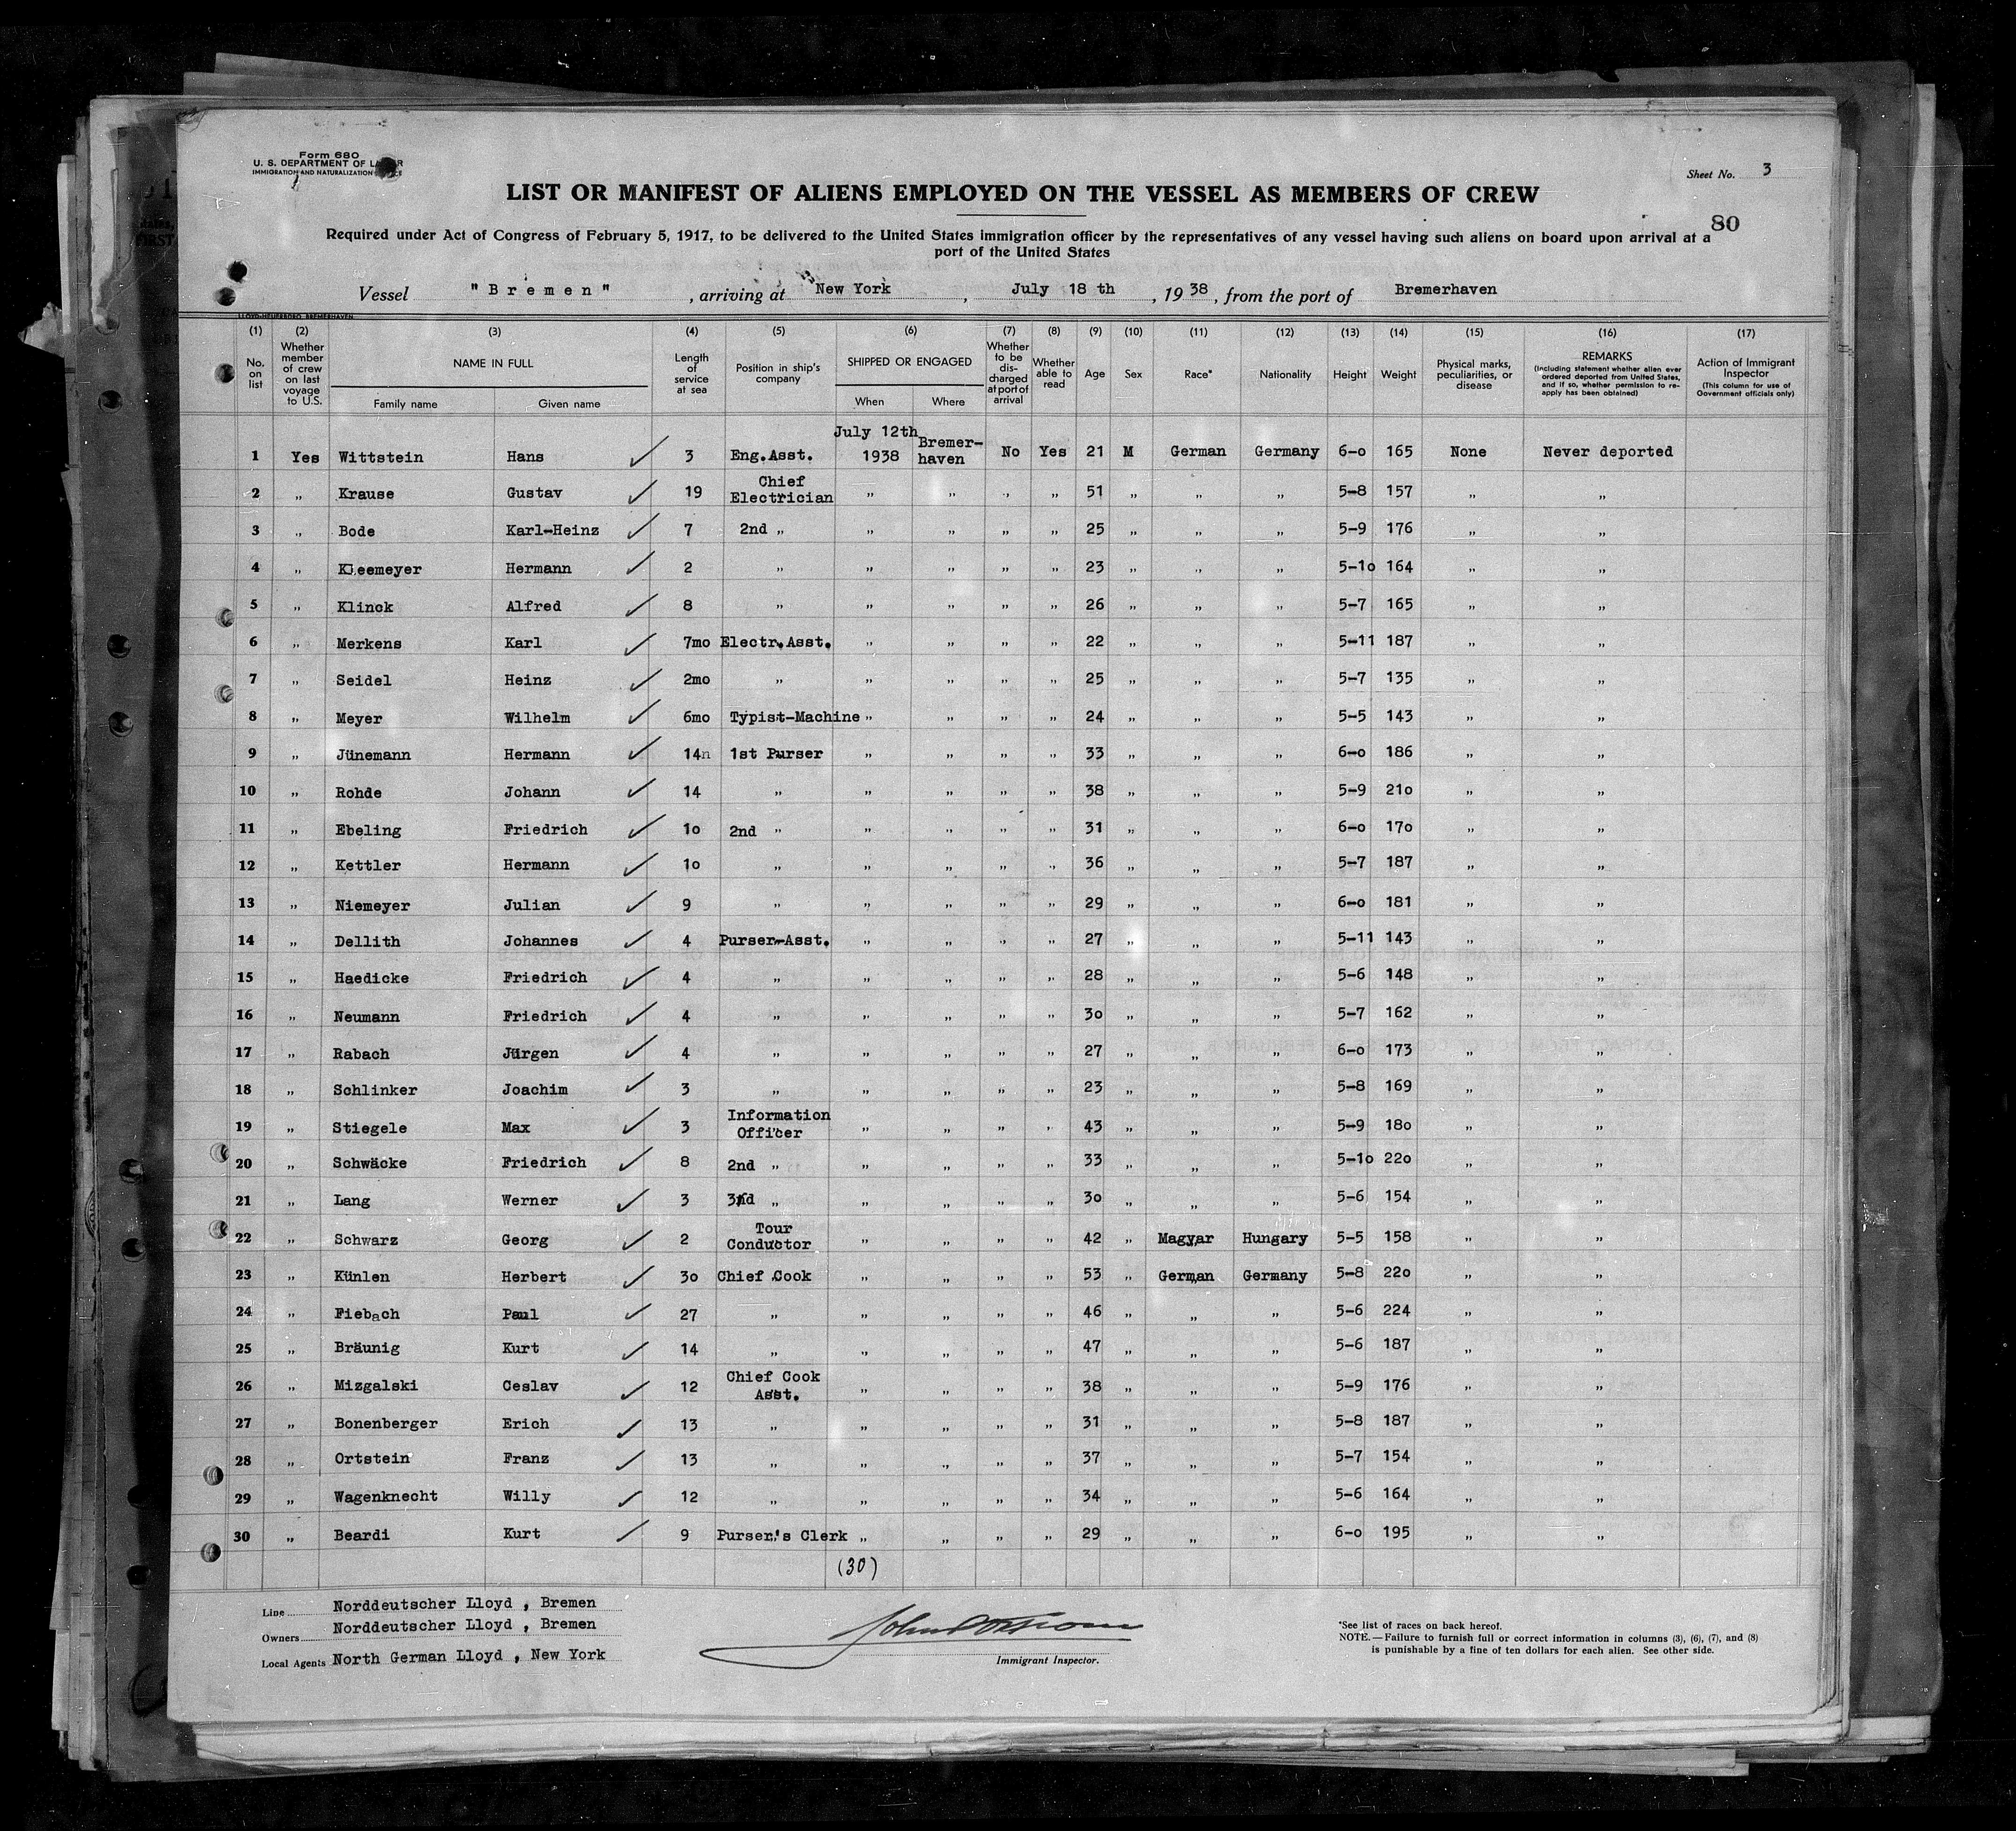 Form 680
U. S. DEPARTMENT OF LABOR
IMMIGRATION AND NATURALIZATION SERVICE
Sheet No. 3
LIST OR MANIFEST OF ALIENS EMPLOYED ON THE VESSEL AS MEMBERS OF CREW
80
Required under Act of Congress of February 5, 1917, to be delivered to the United States immigration officer by the representatives of any vessel having such aliens on board upon arrival at a
port of the United States
Vessel "Bremen", arriving at New York, July 18 th, 1938, from the port of Bremerhaven
(1) (2) (3) (4) (5) (6) (7) (8) (9) (10) (11) (12) (13) (14) (15) (16) (17)
No. on list
Whether member of crew on last voyage to U.S.
NAME IN FULL
Family name Given name
Length of service at sea
Position in ship's company
SHIPPED OR ENGAGED
When Where
Whether to be discharged at port of arrival
Whether able to read
Age
Sex
Race*
Nationality
Height
Weight
Physical marks, peculiarities, or disease
REMARKS
(Including statement whether alien ever ordered deported from United States, and if so, whether permission to reapply has been obtained)
Action of Immigrant Inspector
(This column for use of Government officials only)
1 Yes Wittstein Hans ✓ 3 Eng.Asst. July 12th 1938 Bremer-haven No Yes 21 M German Germany 6-o 165 None Never deported
2 " Krause Gustav ✓ 19 Chief Electrician " " " " 51 " " " 5-8 157 " "
3 " Bode Karl-Heinz ✓ 7 2nd " " " " " 25 " " " 5-9 176 " "
4 " Kleemeyer Hermann ✓ 2 " " " " " 23 " " " 5-1o 164 " "
5 " Klinck Alfred ✓ 8 " " " " " 26 " " " 5-7 165 " "
6 " Merkens Karl ✓ 7mo Electr.Asst. " " " " 22 " " " 5-11 187 " "
7 " Seidel Heinz ✓ 2mo " " " " " 25 " " " 5-7 135 " "
8 " Meyer Wilhelm ✓ 6mo Typist-Machine " " " " 24 " " " 5-5 143 " "
9 " Jünemann Hermann ✓ 14n 1st Purser " " " " 33 " " " 6-o 186 " "
10 " Rohde Johann ✓ 14 " " " " " 38 " " " 5-9 21o " "
11 " Ebeling Friedrich ✓ 1o 2nd " " " " " 31 " " " 6-o 17o " "
12 " Kettler Hermann ✓ 1o " " " " " 36 " " " 5-7 187 " "
13 " Niemeyer Julian ✓ 9 " " " " " 29 " " " 6-o 181 " "
14 " Dellith Johannes ✓ 4 Purser-Asst. " " " " 27 " " " 5-11 143 " "
15 " Haedicke Friedrich ✓ 4 " " " " " 28 " " " 5-6 148 " "
16 " Neumann Friedrich ✓ 4 " " " " " 3o " " " 5-7 162 " "
17 " Rabach Jürgen ✓ 4 " " " " " 27 " " " 6-o 173 " "
18 " Schlinker Joachim ✓ 3 " " " " " 23 " " " 5-8 169 " "
19 " Stiegele Max ✓ 3 Information Officer " " " " 43 " " " 5-9 18o " "
20 " Schwäcke Friedrich ✓ 8 2nd " " " " " 33 " " " 5-1o 22o " "
21 " Lang Werner ✓ 3 3rd " " " " " 3o " " " 5-6 154 " "
22 " Schwarz Georg ✓ 2 Tour Conductor " " " " 42 " Magyar Hungary 5-5 158 " "
23 " Künlen Herbert ✓ 3o Chief Cook " " " " 53 " German Germany 5-8 22o " "
24 " Fiebach Paul ✓ 27 " " " " " 46 " " " 5-6 224 " "
25 " Bräunig Kurt ✓ 14 " " " " " 47 " " " 5-6 187 " "
26 " Mizgalski Ceslav ✓ 12 Chief Cook Asst. " " " " 38 " " " 5-9 176 " "
27 " Bonenberger Erich ✓ 13 " " " " " 31 " " " 5-8 187 " "
28 " Ortstein Franz ✓ 13 " " " " " 37 " " " 5-7 154 " "
29 " Wagenknecht Willy ✓ 12 " " " " " 34 " " " 5-6 164 " "
30 " Beardi Kurt ✓ 9 Purser's Clerk " " " " 29 " " " 6-o 195 " "
(30)
Line Norddeutscher Lloyd , Bremen
Owners Norddeutscher Lloyd , Bremen
Local Agents North German Lloyd , New York
Immigrant Inspector.
*See list of races on back hereof.
NOTE.—Failure to furnish full or correct information in columns (3), (6), (7), and (8)
is punishable by a fine of ten dollars for each alien. See other side.